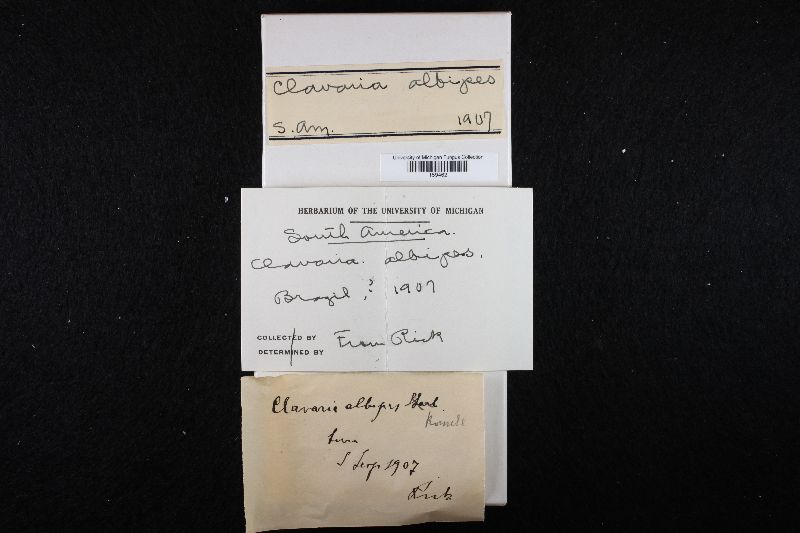 Clavaria albipes
S. Am. 1907
University of Michigan Fungus Collection
159462
HERBARIUM OF THE UNIVERSITY OF MICHIGAN
South America.
Clavaria. albipes.
Brazil,? 1907
COLLECTED BY From Rick
DETERMINED BY
Clavaria albipes
1907
Rick